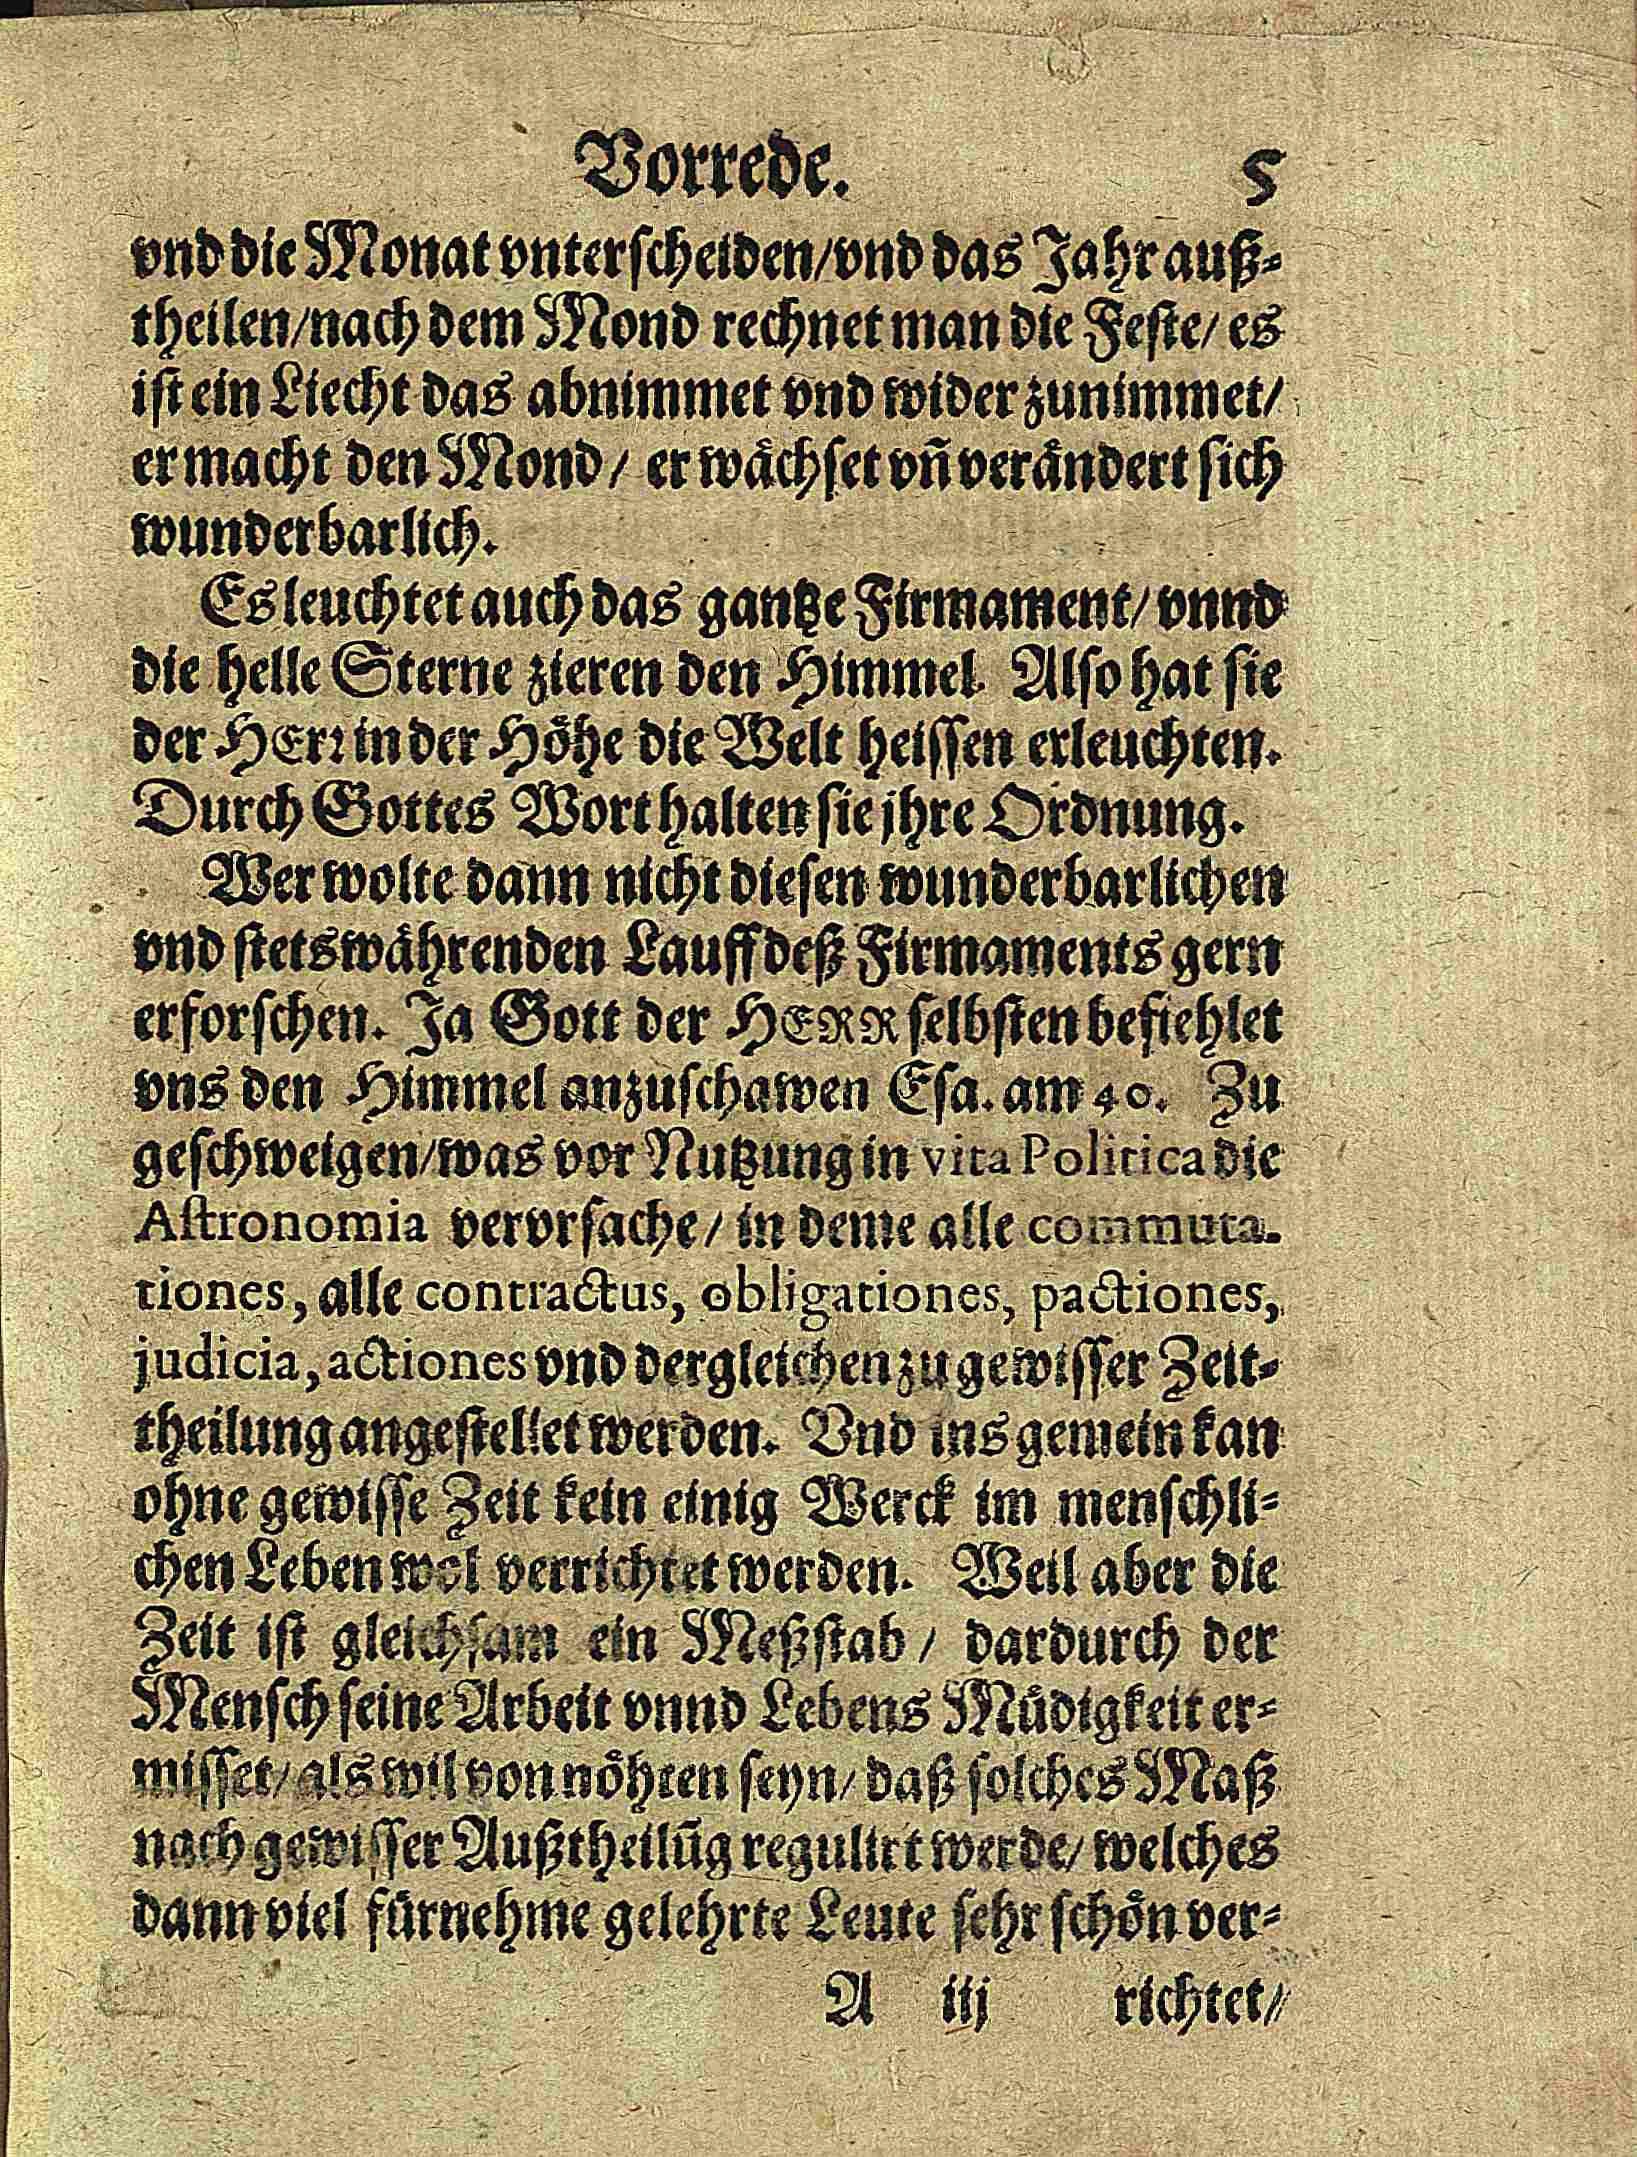 Vorrede. 5
vnd die Monat vnterscheiden/vnd das Jahr auß-
theilen/nach dem Mond rechnet man die Feste/ es
ist ein Liecht das abnimmet vnd wider zunimmet/
er macht den Mond/ er wächset vñ verändert sich
wunderbarlich.
Es leuchtet auch das gantze Firmament/ vnnd
die helle Sterne zieren den Himmel. Also hat sie
der HErr in der Höhe die Welt heissen erleuchten.
Durch Gottes Wort halten sie jhre Ordnung.
Wer wolte dann nicht diesen wunderbarlichen
vnd stetswährenden Lauff deß Firmaments gern
erforschen. Ja Gott der HERR selbsten befiehlet
vns den Himmel anzuschawen Esa. am 40. Zu
geschweigen/was vor Nutzung in vita Politica die
Astronomia vervrsache/ in deme alle commuta-
tiones, alle contractus, obligationes, pactiones,
judicia, actiones vnd dergleichen zu gewisser Zeit-
theilung angestellet werden. Vnd ins gemein kan
ohne gewisse Zeit kein einig Werck im menschli-
chen Leben wol verrichtet werden. Weil aber die
Zeit ist gleichsam ein Meßstab/ dardurch der
Mensch seine Arbeit vnnd Lebens Müdigkeit er-
misset/ als wil von nöhten seyn/ daß solches Maß
nach gewisser Außtheilũg regulirt werde/ welches
dann viel fürnehme gelehrte Leute sehr schön ver-
A iij richtet/